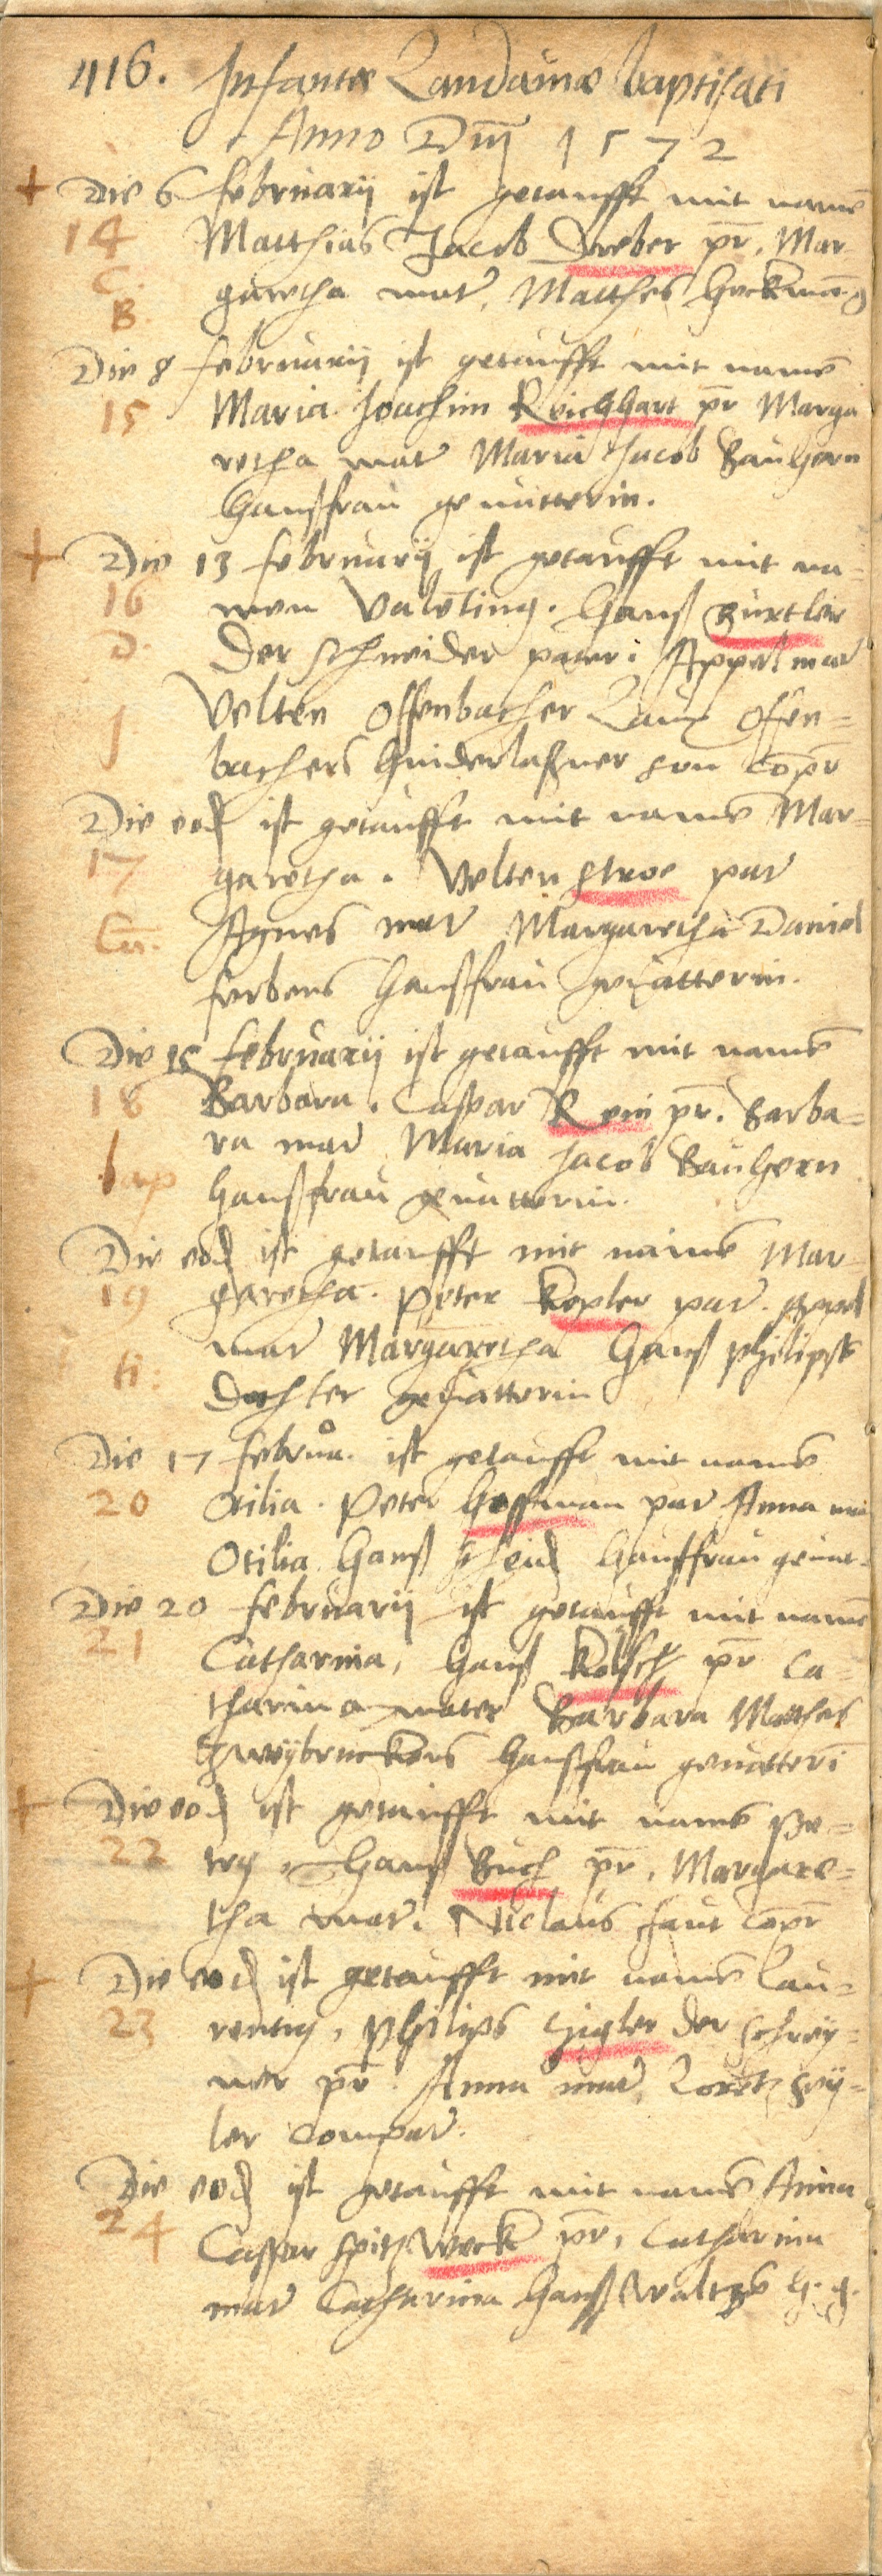 416. Infantes Landavinae baptisati
Anno Dnj 1572
+ Die 6 februarij ist getaufft mit namē
14 Matthias Jacob Dreber pr. Mar
C. garetha mat. Matthes Heckman
B.
Die 8 februarij ist getaufft mit namē
15 Maria. Joachim Reichhart pr Marga
retha mat Maria Jacob Bauhern
haußfrau geuatterin.
+ Die 13 februarij ist getaufft mit na-
16 men Valēting. Hanß Gürtler
D. der schneider pater. Appel mat
J. Velten Offenbacher Laux Offen=
bachers hinderlaßner son Compr
Die eod ist getaufft mit namē Mar=
17 garetha. Velten Stroe pat
Agnes mat Margaretha Daniel
ferbers haußfrau geuatterin.
Die 15 februarij ist getaufft mit namē
18 Barbara. Caspar Rein pr. Barba=
bap ra mat Maria Jacob Bauhern
haußfrau geuatterin.
Die eod ist getaufft mit namē Mar
19 garetha. Peter Kepler pat. Appel
ti: mat Margaretha Hanß philipß
dochter geuatterin
Die 17 februa. ist getaufft mit namē
20 Otilia. Peter Hoffman pat Anna mat
Otilia Hanß haußfrau geuat.
Die 20 februarij ist getaufft mit namē
21 Catharina, Hanß Kölsch pr Ca=
tharina mater Barbara Matthes
Zweybruckers haußfrau geuatteri
+ Die eod ist getaufft mit namē Pe=
22 trg. Hanß Buch pr. Margare=
tha mat. Niclaus faut Compr
+ Die eod ist getaufft mit namē Lau=
23 rentig, Philips Zigler der schrey=
ner pr Anna mat. Lorētz Sey=
ler Compat.
Die eod ist getaufft mit namē Anna
24 Caspar Spitzweck pr, Catharina
mat Catharina Hanß Waltzē h. g.